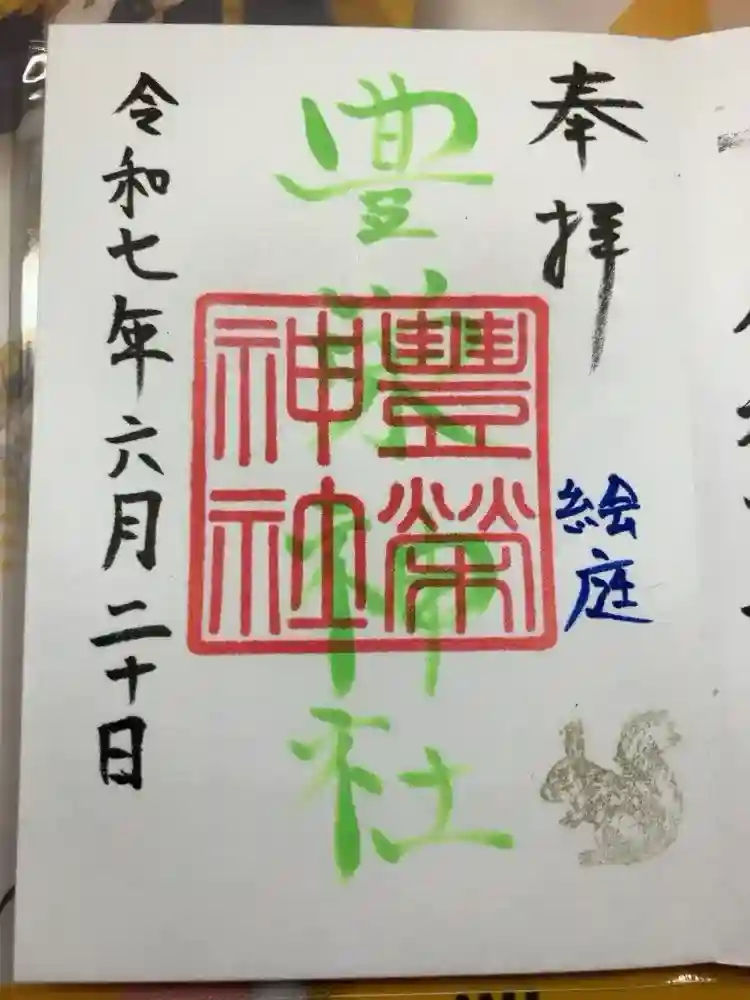 奉拝
絵庭
豊栄神社
豐榮神社
令和七年六月二十日